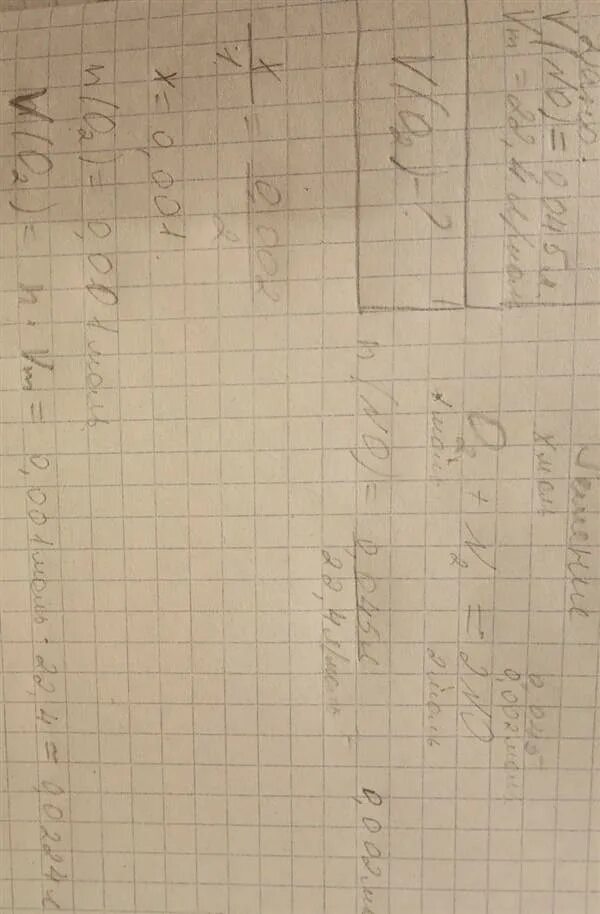 Дано:
V(NO) = 0,045 л
Vm = 22,4 л/моль
V(O2) - ?
Решение
X моль 0,045
0,002 моль
O2 + N2 = 2NO
1 моль 2 моль
n(NO) = 0,045л / 22,4 л/моль = 0,002 м
X / 1 = 0,002 / 2
X = 0,001.
n(O2) = 0,001 моль
V(O2) = n · Vm = 0,001 моль · 22,4 = 0,0224 л